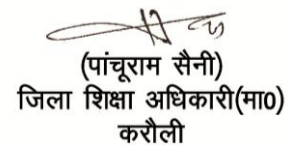 (पांचूराम सैनी)
जिला शिक्षा अधिकारी(मा०)
करौली